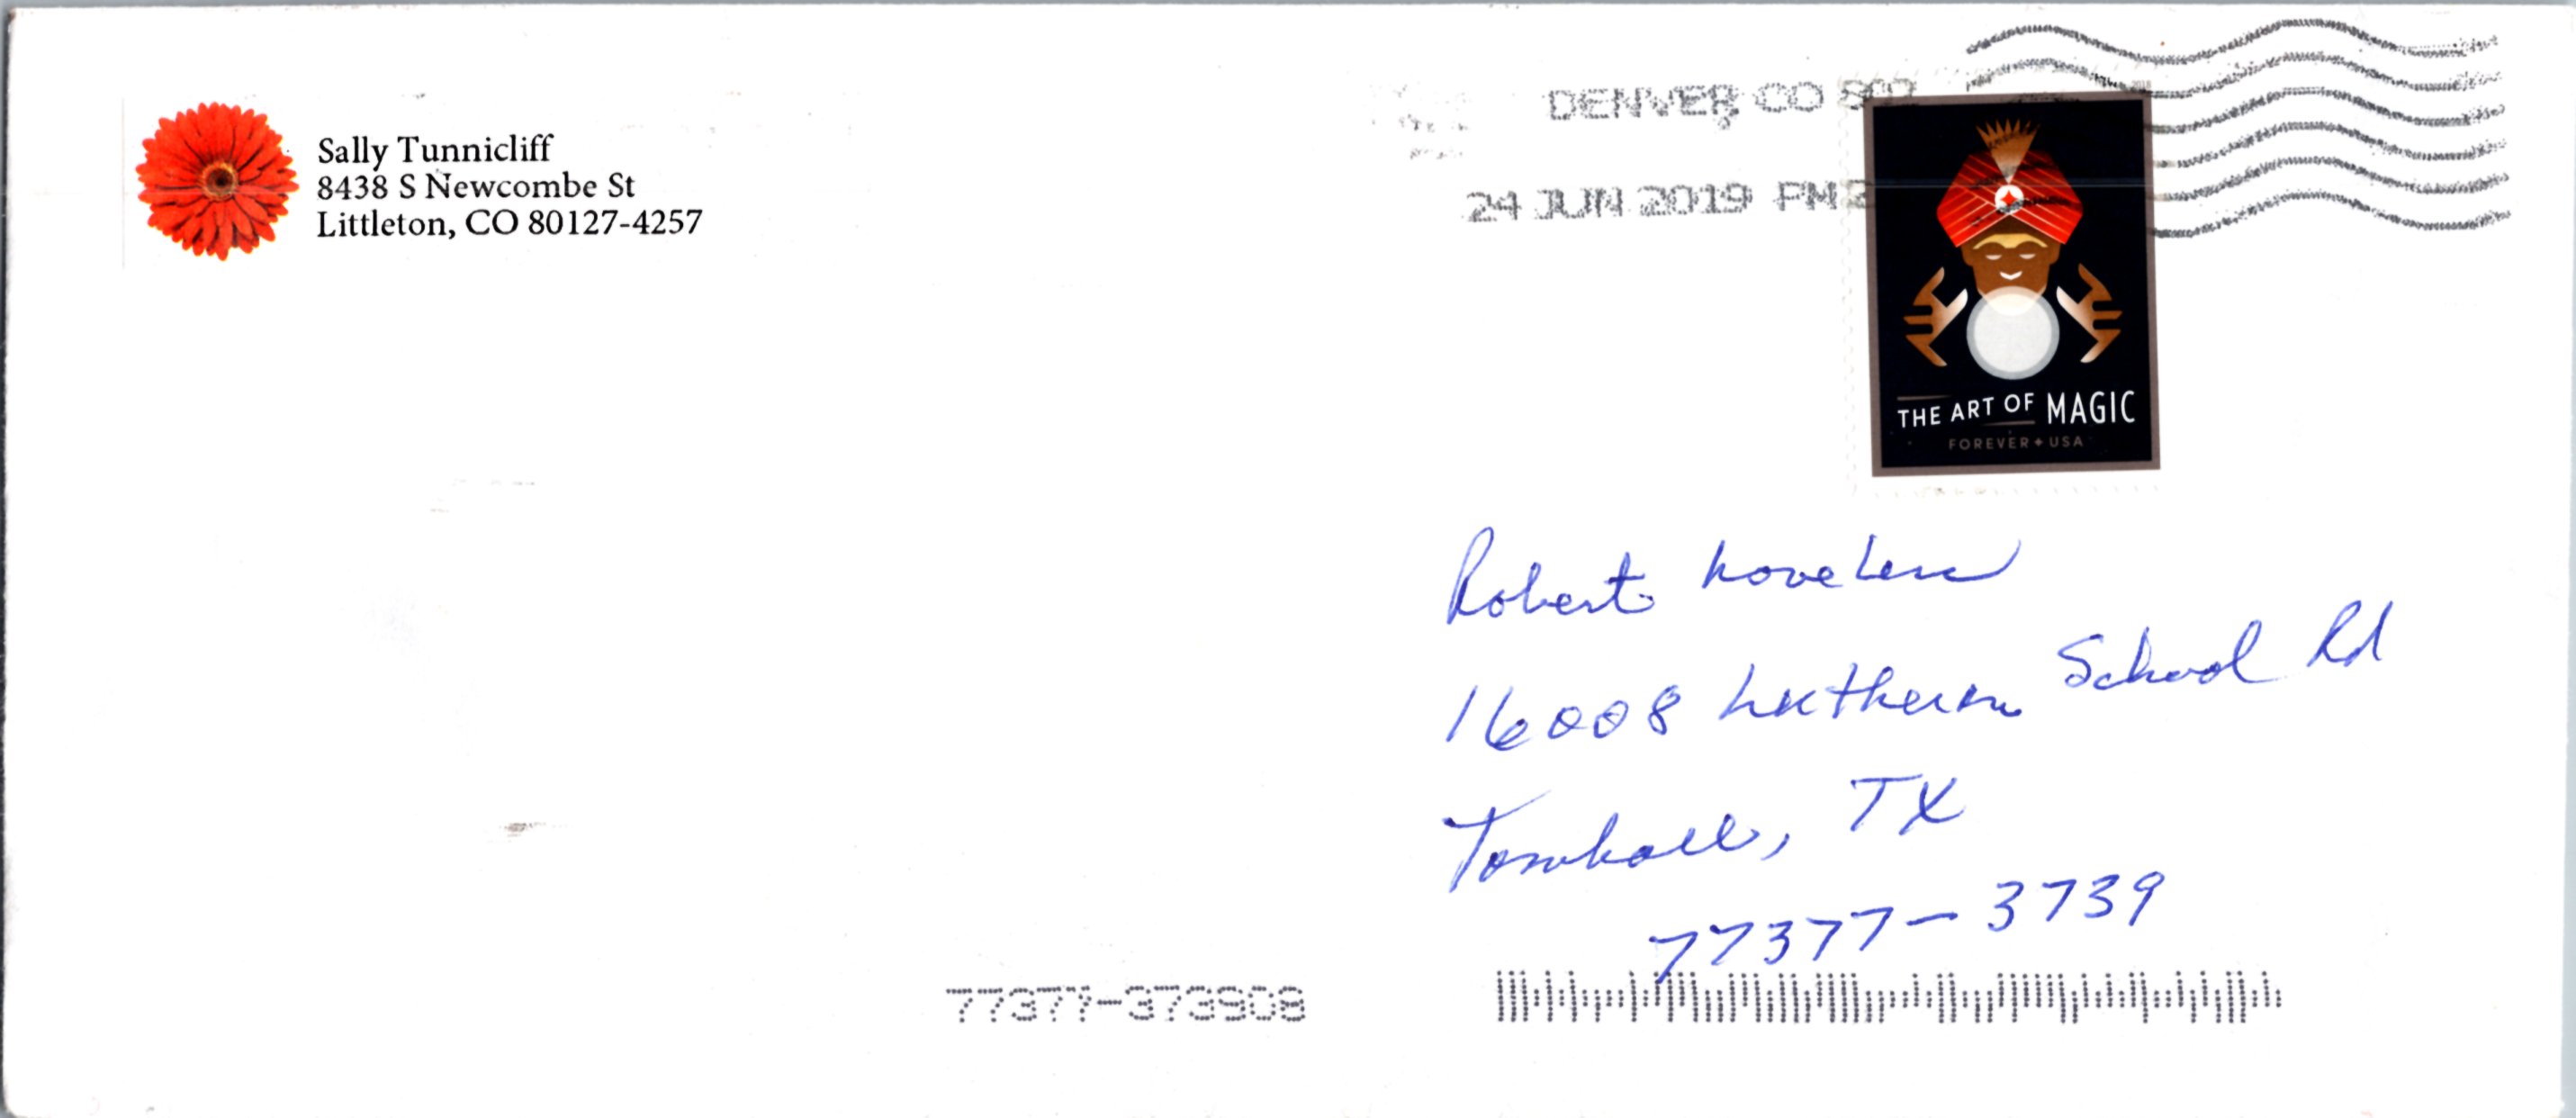 Sally Tunnicliff
8438 S Newcombe St
Littleton, CO 80127-4257
DENVER CO 800
24 JUN 2019 PM
THE ART OF MAGIC
FOREVER USA
Robert
16008 Lutheran School Rd
Tomball, TX
77377-3739
77377-373908